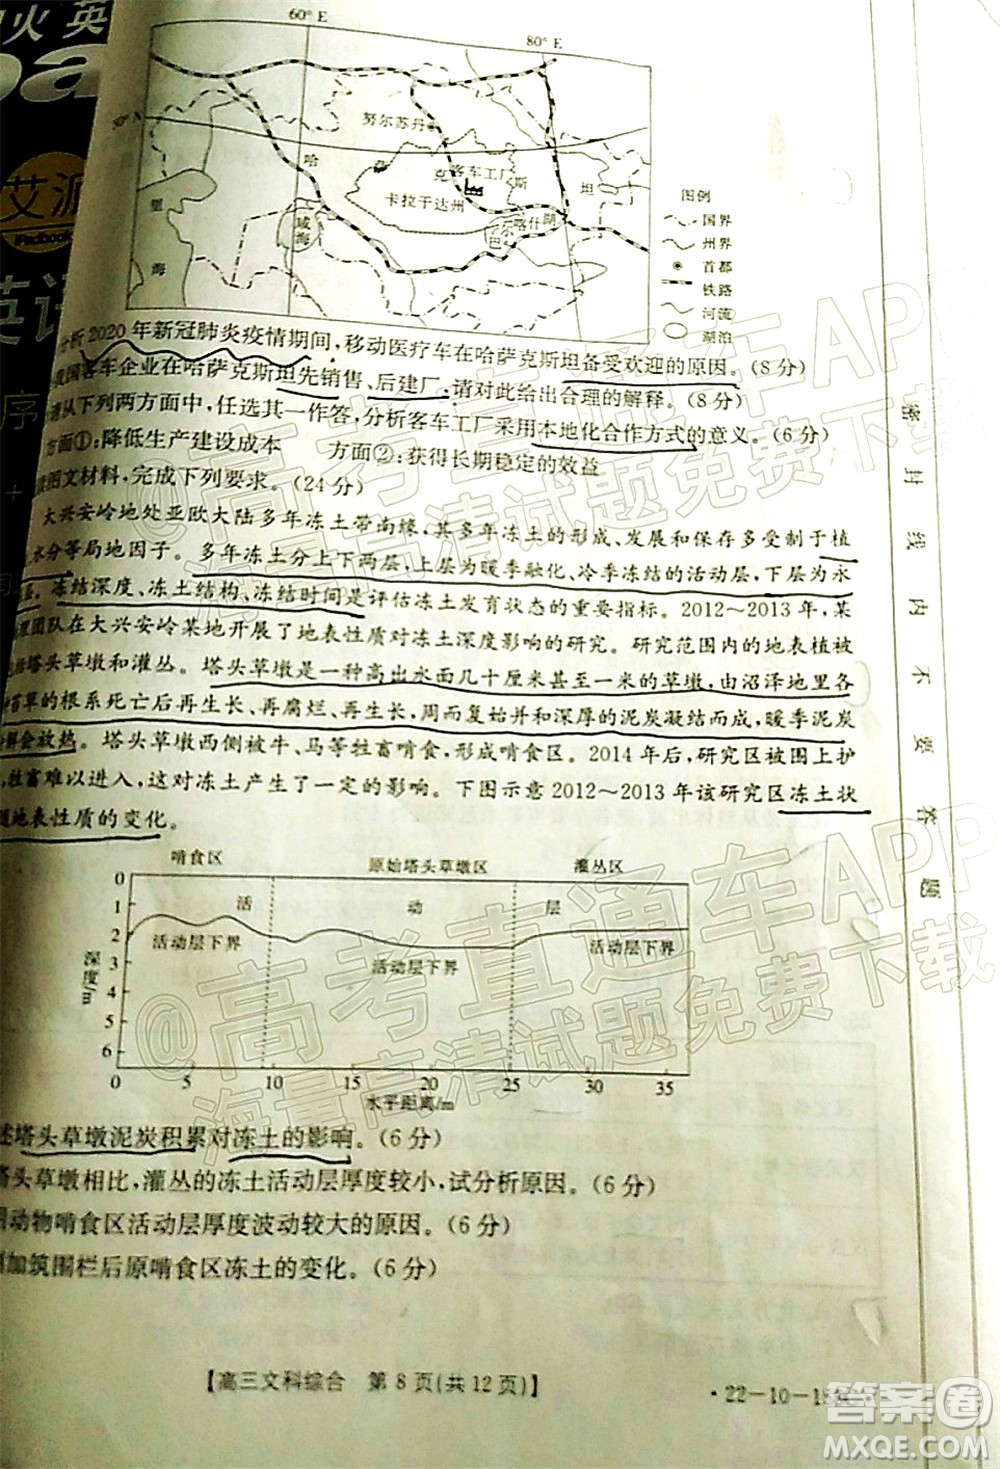 火 英
艾派
iPadbook
英语
序
60° E
80° E
50° N
努尔苏丹
哈
萨
克
客车工厂
斯
坦
卡拉干达州
里
海
咸
海
巴
尔
喀什湖
图例
国界
州界
首都
铁路
河流
湖泊
分析2020年新冠肺炎疫情期间,移动医疗车在哈萨克斯坦备受欢迎的原因。(8分)
我国客车企业在哈萨克斯坦先销售、后建厂,请对此给出合理的解释。(8分)
请从下列两方面中,任选其一作答,分析客车工厂采用本地化合作方式的意义。(6分)
方面①:降低生产建设成本 方面②:获得长期稳定的效益
读图文材料,完成下列要求。(24分)
大兴安岭地处亚欧大陆多年冻土带南缘,其多年冻土的形成、发展和保存多受制于植
水分等局地因子。多年冻土分上下两层,上层为暖季融化、冷季冻结的活动层,下层为永
冻结深度、冻土结构、冻结时间是评估冻土发育状态的重要指标。2012～2013年,某
团队在大兴安岭某地开展了地表性质对冻土深度影响的研究。研究范围内的地表植被
塔头草墩和灌丛。塔头草墩是一种高出水面几十厘米甚至一米的草墩,由沼泽地里各
苔草的根系死亡后再生长、再腐烂、再生长,周而复始并和深厚的泥炭凝结而成,暖季泥炭
会放热。塔头草墩西侧被牛、马等牲畜啃食,形成啃食区。2014年后,研究区被围上护
牲畜难以进入,这对冻土产生了一定的影响。下图示意2012～2013年该研究区冻土状
地表性质的变化。
啃食区 原始塔头草墩区 灌丛区
活 动 层
活动层下界 活动层下界 活动层下界
深度/m
0
1
2
3
4
5
6
0 5 10 15 20 25 30 35
水平距离/m
述塔头草墩泥炭积累对冻土的影响。(6分)
塔头草墩相比,灌丛的冻土活动层厚度较小,试分析原因。(6分)
动物啃食区活动层厚度波动较大的原因。(6分)
加筑围栏后原啃食区冻土的变化。(6分)
【高三文科综合 第8页(共12页)】
·22-10-15
密 封 线 内 不 要 答 题
@高考直通车APP
海量高清试题免费下载
@高考直通车APP
海量高清试题免费下载
答案圈
MXQE.COM